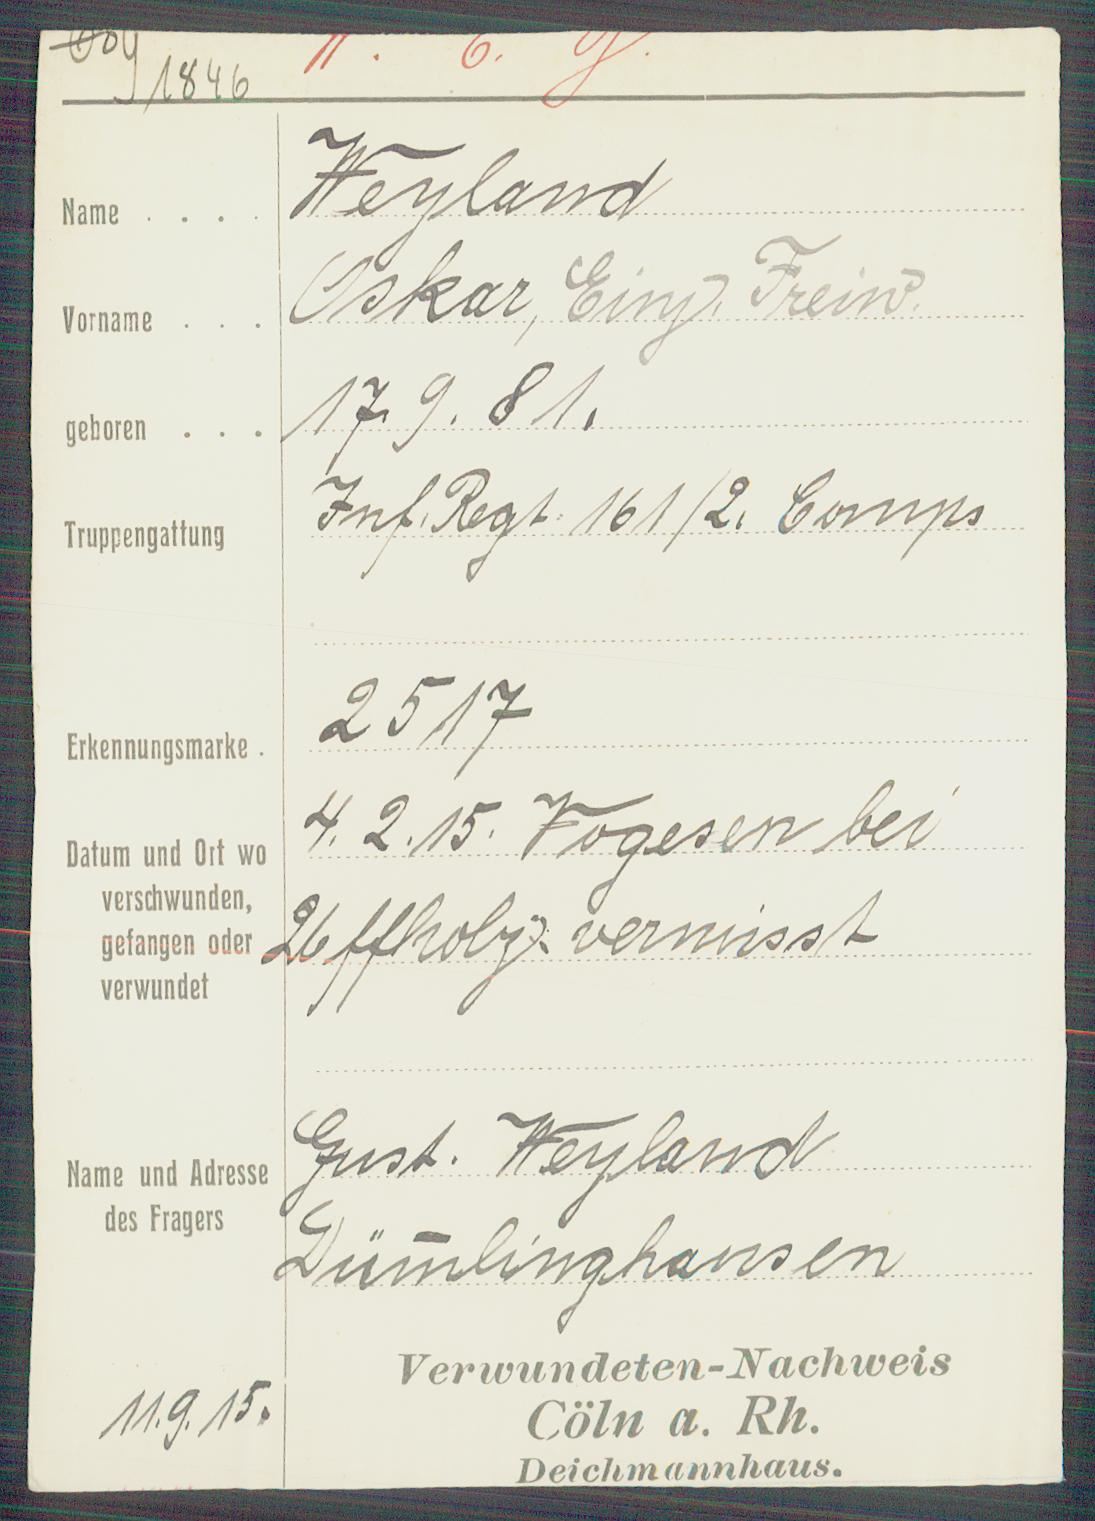 1846
Name . . . . Weyland
Vorname . . . Oskar, Einj. Freiw.
geboren . . . 17. 9. 81.
Truppengattung Inf. Regt. 161/2. Comp
Erkennungsmarke . 2517
Datum und Ort wo 4. 2. 15. Vogesen bei
verschwunden,
gefangen oder Uffholz: vermisst
verwundet
Name und Adresse Gust. Weyland
des Fragers
Düm̅linghausen
Verwundeten-Nachweis
11.9.15. Cöln a. Rh.
Deichmannhaus.